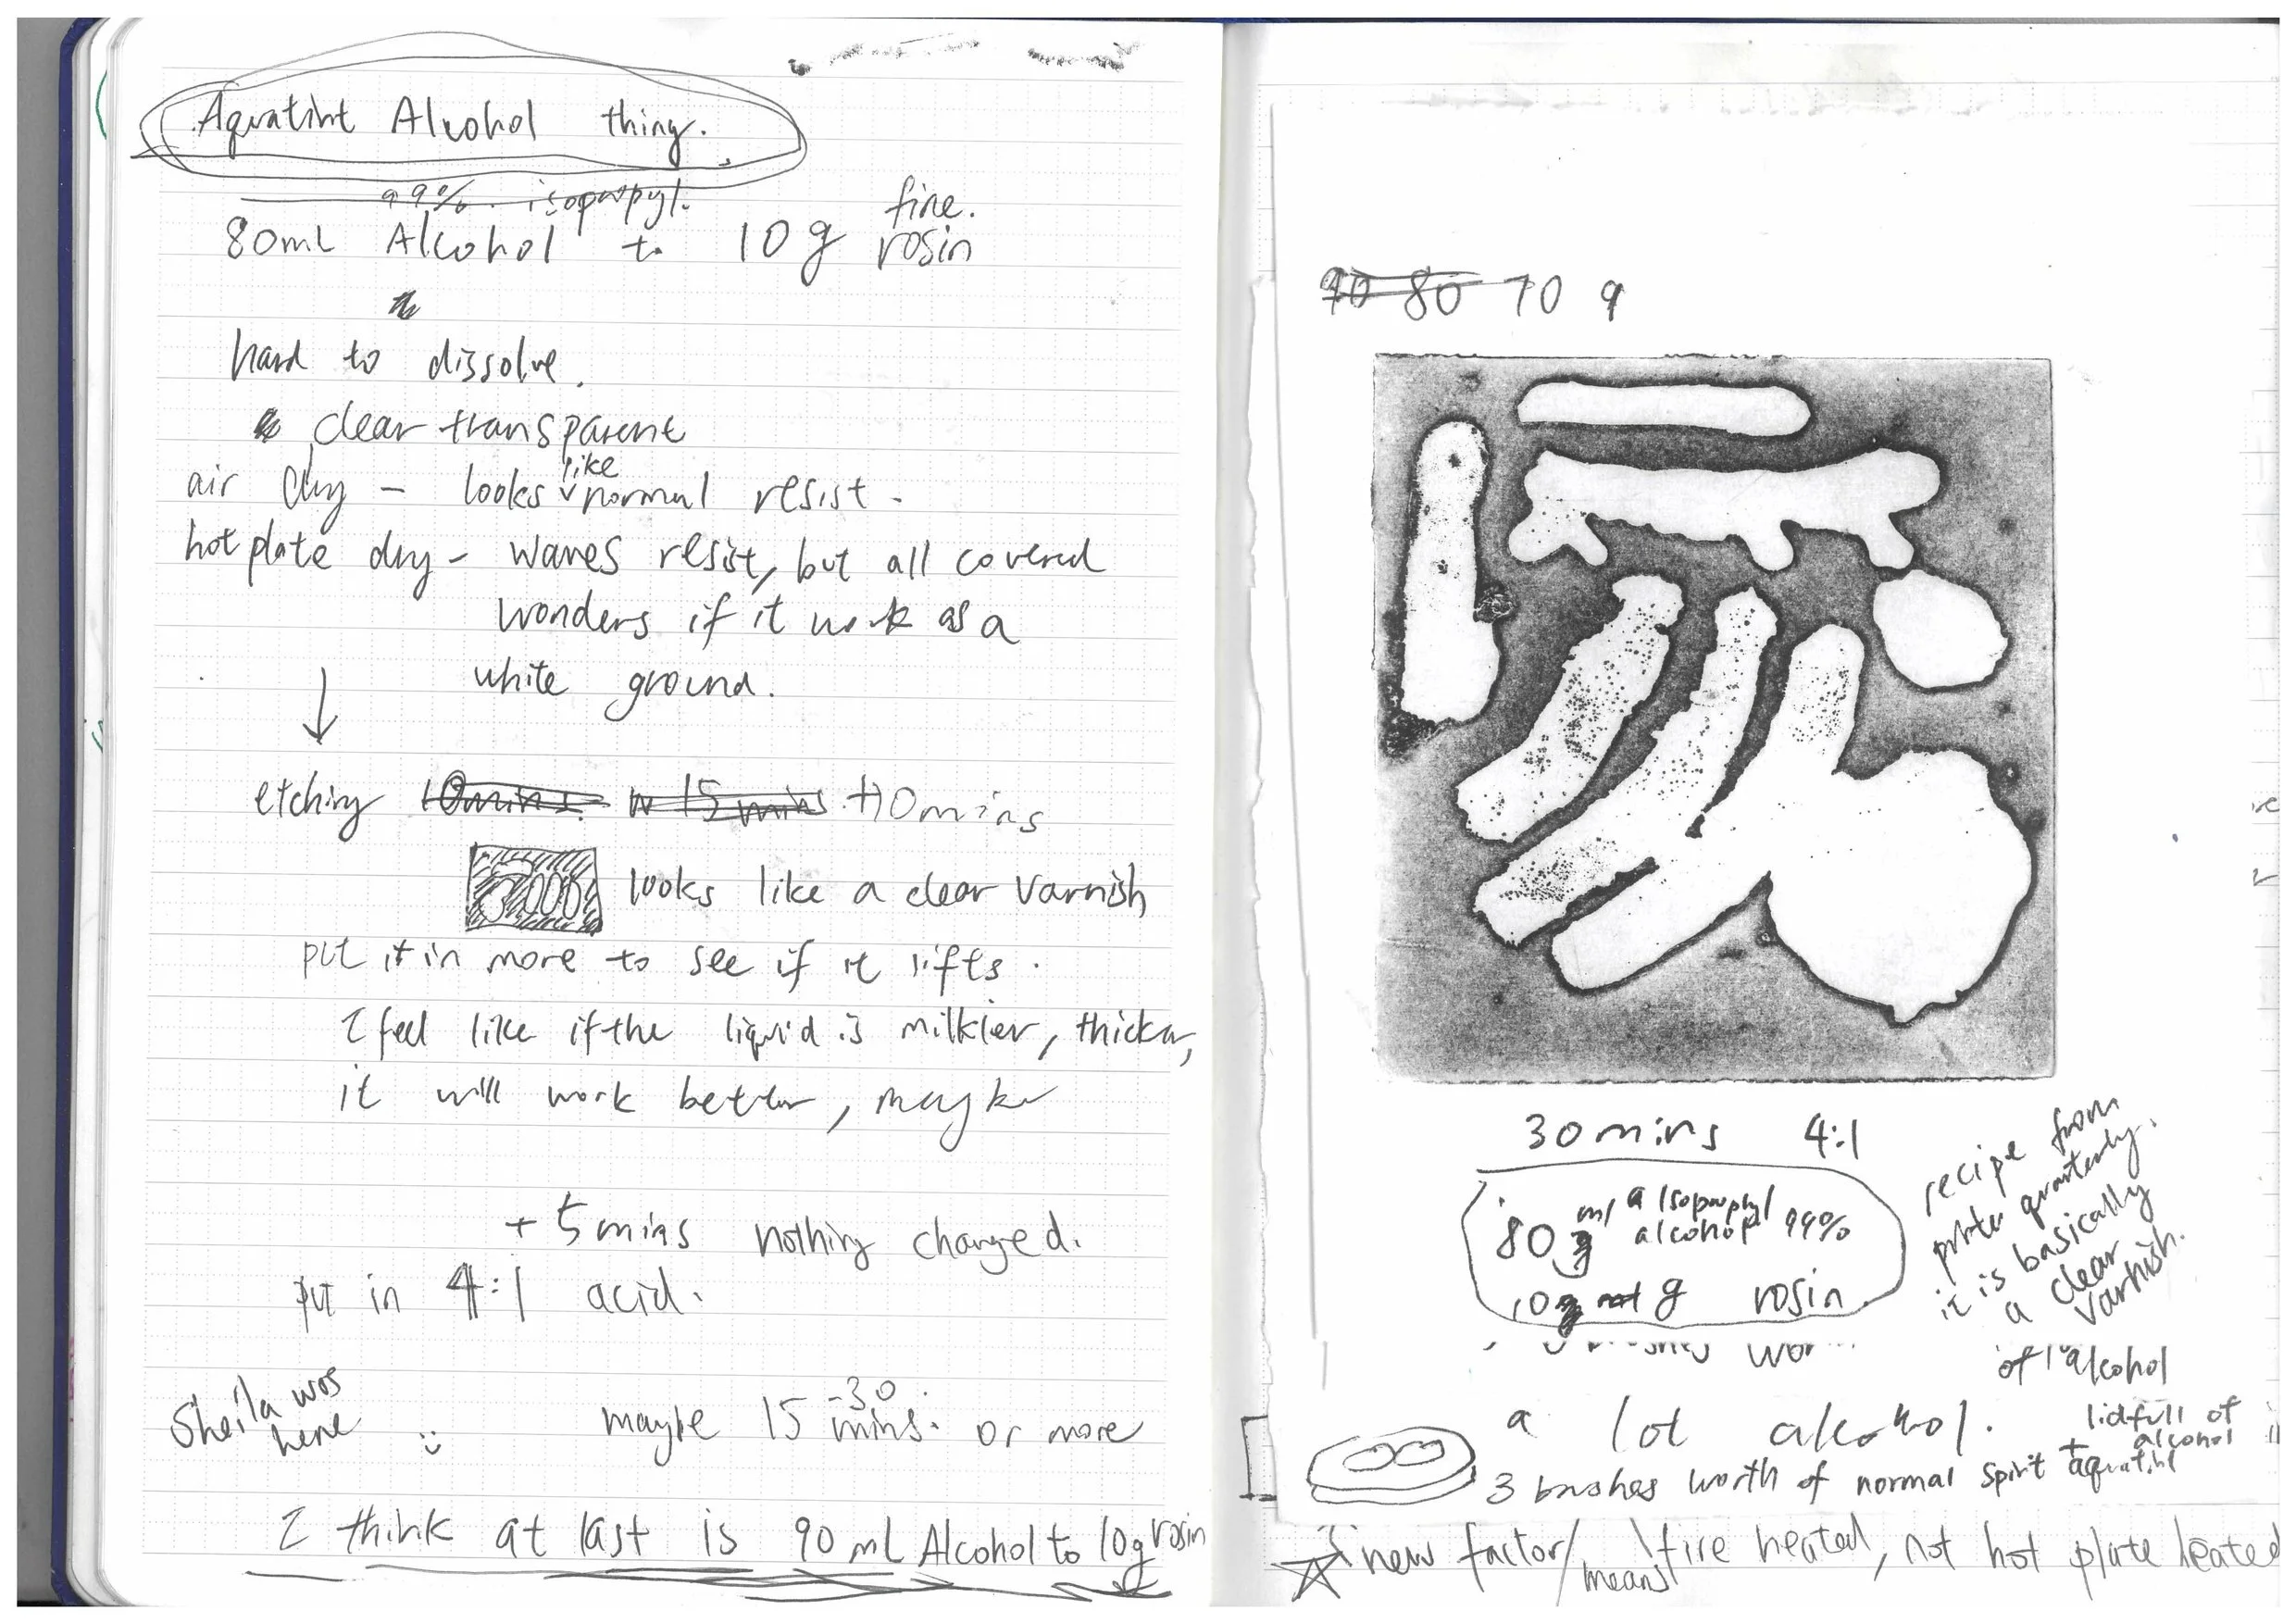 Aquatint Alcohol thing.
99% isopropyl. fine.
80mL Alcohol to 10g rosin
hard to dissolve.
clear transparent
like
air dry - looks v normal resist.
hot plate dry - waves resist, but all covered
wonders if it work as a
white ground.
etching 10mins. 15 mins +10mins
looks like a clear varnish
put it in more to see if it lifts.
I feel like if the liquid is milkier, thicker,
it will work better, maybe
+ 5mins nothing changed.
put in 4:1 acid.
Sheila was
here
-30
maybe 15 mins. or more
I think at last is 90mL Alcohol to 10g rosin
90 80 70 g
30mins 4:1
80 ml isopropyl
alcohol 99%
10 g rosin
recipe from
quarterly.
it is basically
a clear
varnish.
of alcohol
a lot alcohol.
lidfull of
+ alcohol
3 brushes worth of normal spirit aquatint
new factor/ means fire heated, not hot plate heated